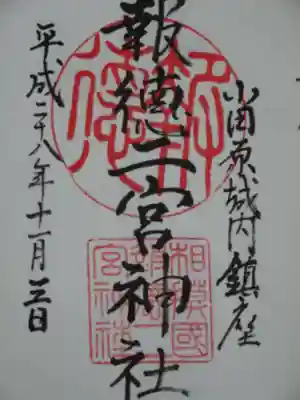 小田原城内鎮座
報徳二宮神社
平成二十八年十一月三日
相模國
報徳二
宮神社
報徳